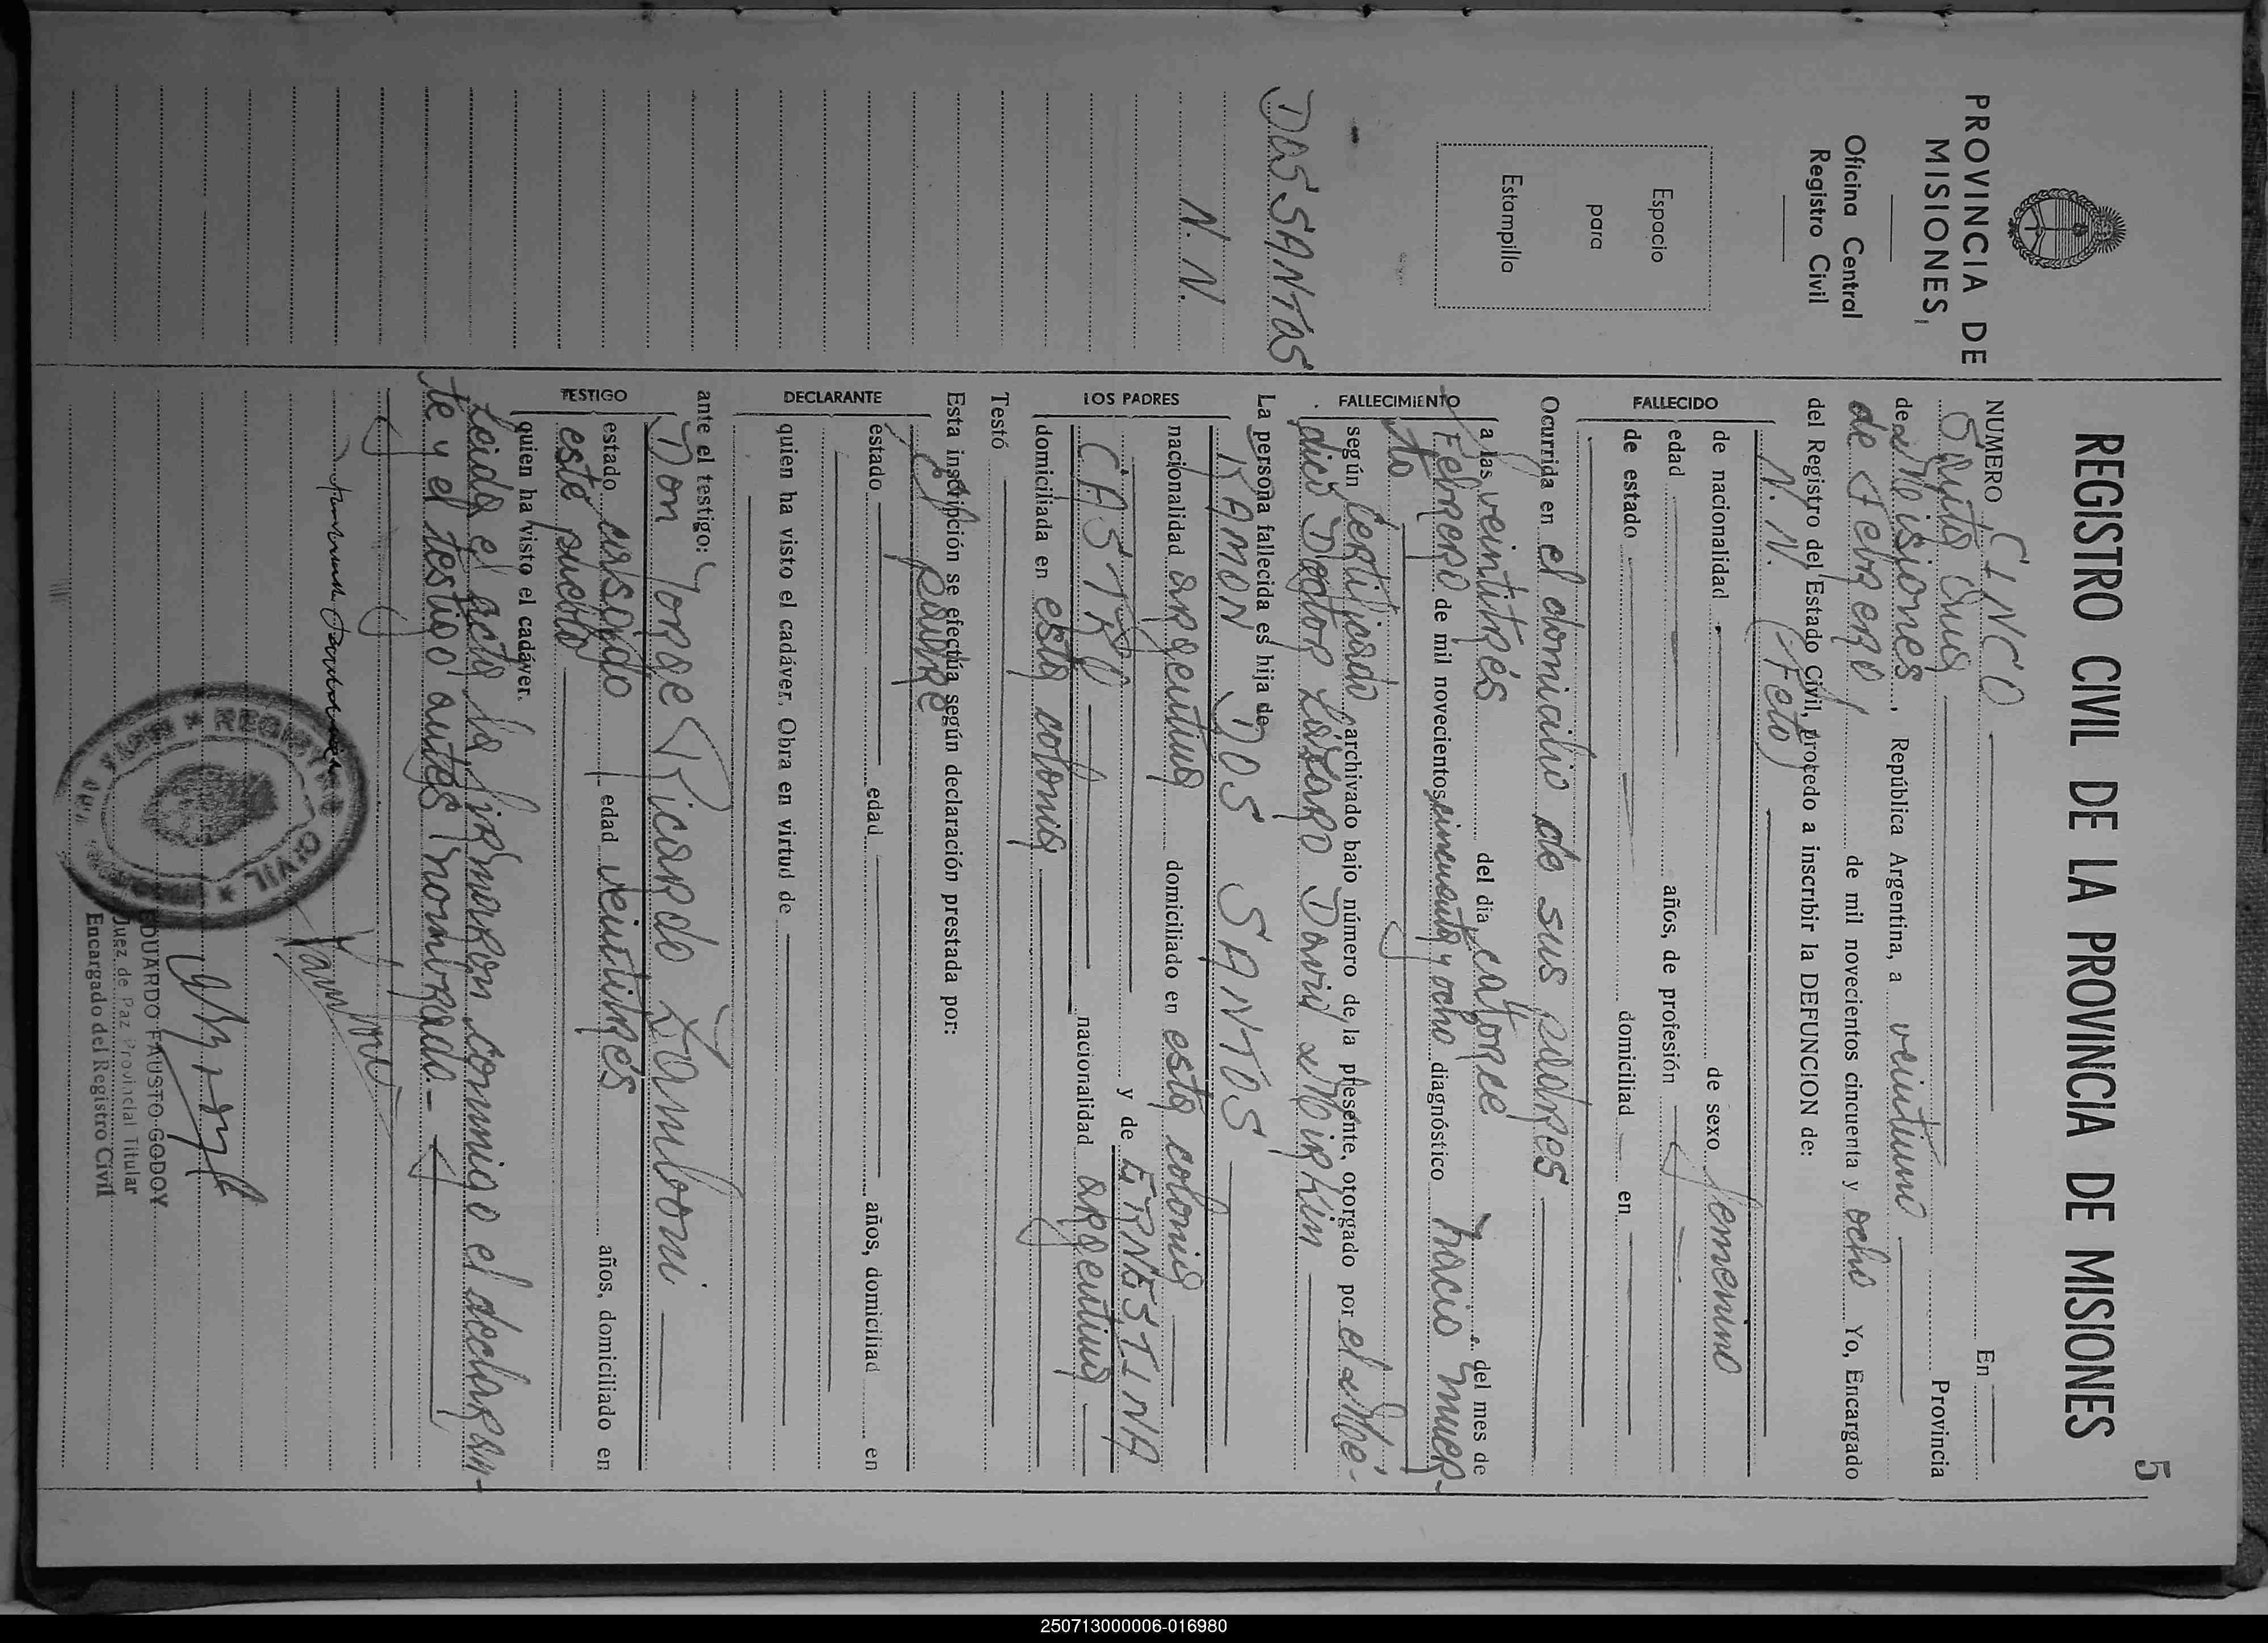 5
PROVINCIA DE
MISIONES,
Oficina Central
Registro Civil
Espacio
para
Estampilla
DOS SANTOS
N. N.
REGISTRO CIVIL DE LA PROVINCIA DE MISIONES
NUMERO CINCO En
Santa Ana Provincia
de Misiones, República Argentina, a veintiuno
de Febrero, de mil novecientos cincuenta y ocho Yo, Encargado
del Registro del Estado Civil, procedo a inscribir la DEFUNCION de:
N. N. (Feto)
FALLECIDO
de nacionalidad de sexo femenino
edad años, de profesión
de estado domiciliad en
Ocurrida en el domicilio de sus padres
FALLECIMIENTO
a las veintitrés del día catorce del mes de
Febrero de mil novecientos cincuenta y ocho diagnóstico nacio muer-
to
según certificado archivado bajo número de la presente, otorgado por el Mé-
dico Doctor Lázaro David Mirkin
La persona fallecida es hija de
LOS PADRES
RAMON DOS SANTOS
nacionalidad argentina domiciliado en esta colonia
y de ERNESTINA
CASTRO nacionalidad argentina
domiciliada en esta colonia
Testó
Esta inscripción se efectúa según declaración prestada por:
DECLARANTE
El padre
estado edad años, domiciliad en
quien ha visto el cadáver. Obra en virtud de
ante el testigo:
TESTIGO
Don Jorge Ricardo Zamboni
estado casado edad veintitrés años, domiciliado en
este pueblo
quien ha visto el cadáver.
Leida el acta la firmaron conmigo el declaran-
te y el testigo antes nombrado.-
REGISTRO CIVIL
EDUARDO FAUSTO GODOY
Juez de Paz Provincial Titular
Encargado del Registro Civil
250713000006-016980